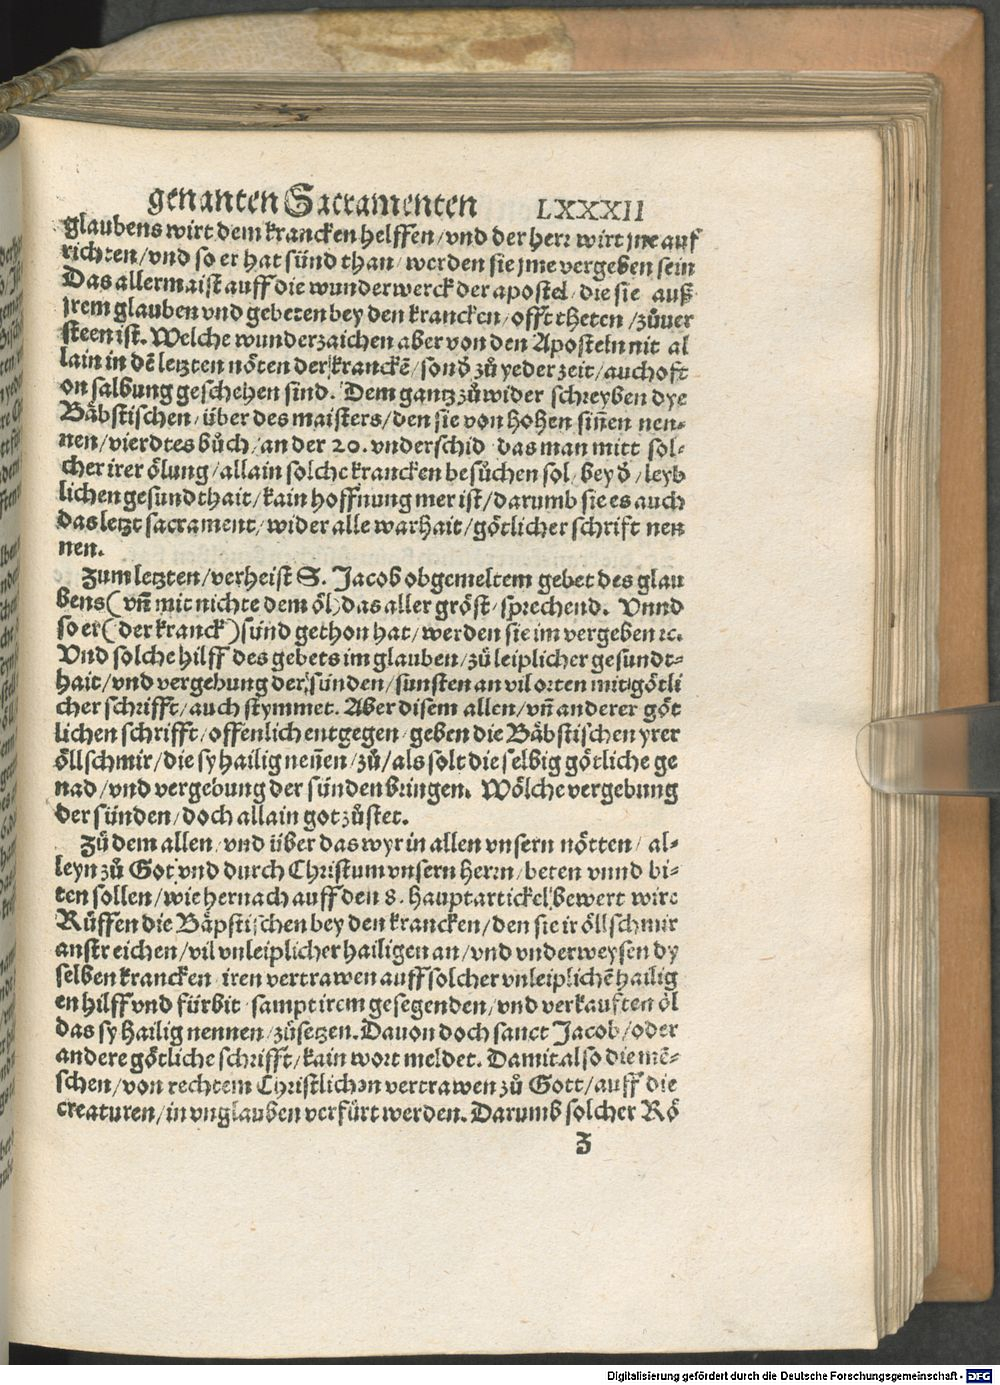 genanten Sacramenten LXXXII
glaubens wirt dem krancken helffen/vnd der herr wirt jne auf
richten/vnd so er hat sünd than/werden sie jme vergeben sein
Das allermaist auff die wunderwerck der apostel/die sie auß
jrem glauben vnd gebeten bey den krancken/offt theten/zůuer
steen ist. Welche wunderzaichen aber von den Aposteln nit al
lain in dē letzten nöten der krancķē/sond̄ zů yeder zeit/auch oft
on salbung geschehen sind. Dem gantz zů wider schreyben dye
Bäbstischen/über des maisters/den sie von hohen siñen nen⸗
nen/vierdtes bůch/an der 20. vnderschid das man mitt sol⸗
cher irer ölung/allain solche krancken besůchen sol/bey d̄/leyb
lichen gesundthait/kain hoffnung mer ist/darumb sie es auch
das letzt sacrament/wider alle warhait/götlicher schrift nen
nen.
Zum letzten/verheist S. Jacob obgemeltem gebet des glau
bens(vñ mit nichte dem öl)das aller gröst/sprechend. Vnnd
so er(der kranck)sünd gethon hat/werden sie im vergeben ꝛc.
Vnd solche hilff des gebets im glauben/zů leiplicher gesundt⸗
hait/vnd vergebung der sünden/sunsten an vil orten mit götli
cher schrifft/auch stymmet. Aber disem allen/vñ anderer göt
lichen schrifft/offenlich entgegen/geben die Bäbstischen yrer
öllschmir/die sy hailig neñen/zů/als solt die selbig götliche ge
nad/vnd vergebung der sünden bringen. Wölche vergebung
der sünden/doch allain got zůstet.
Zů dem allen/vnd über das wyr in allen vnsern nötten/al⸗
leyn zů Got vnd durch Christum vnsern herrn/beten vnnd bi⸗
ten sollen/wie hernach auff den 8. hauptartickel bewert wirt
Rüffen die Bäpstischen bey den krancken/den sie ir öllschmir
anstreichen/vil vnleiplicher hailigen an/vnd vnderweysen dy
selben krancken iren vertrawen auff solcher vnleiplichē hailig
en hilff vnd fürbit sampt irem gesegenden/vnd verkauften öl
das sy hailig nennen/zůsetzen. Dauon doch sanct Jacob/oder
andere götliche schrifft/kain wort meldet. Damit also die mē⸗
schen/von rechtem Christlichen vertrawen zů Gott/auff die
creaturen/in vnglauben verfürt werden. Darumb solcher Rö
Z
Digitalisierung gefördert durch die Deutsche Forschungsgemeinschaft - DFG